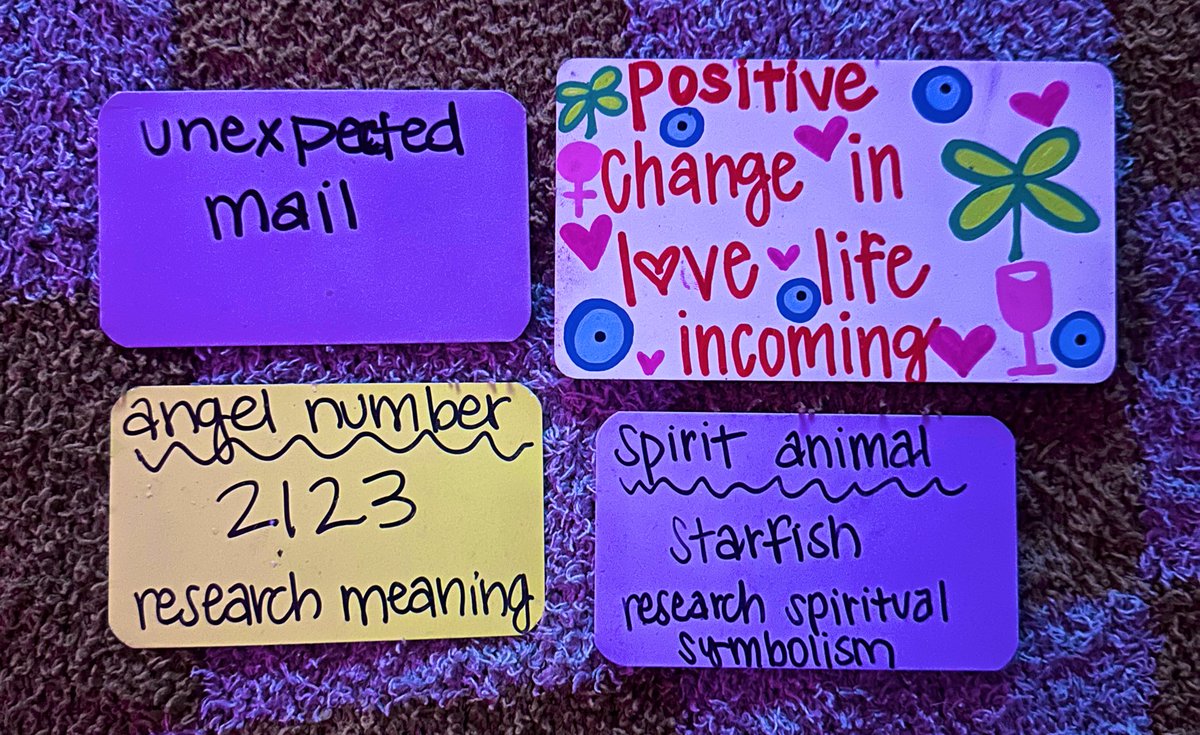 unexpected
mail
positive
change in
love life
incoming
angel number
2123
research meaning
spirit animal
starfish
research spiritual
symbolism